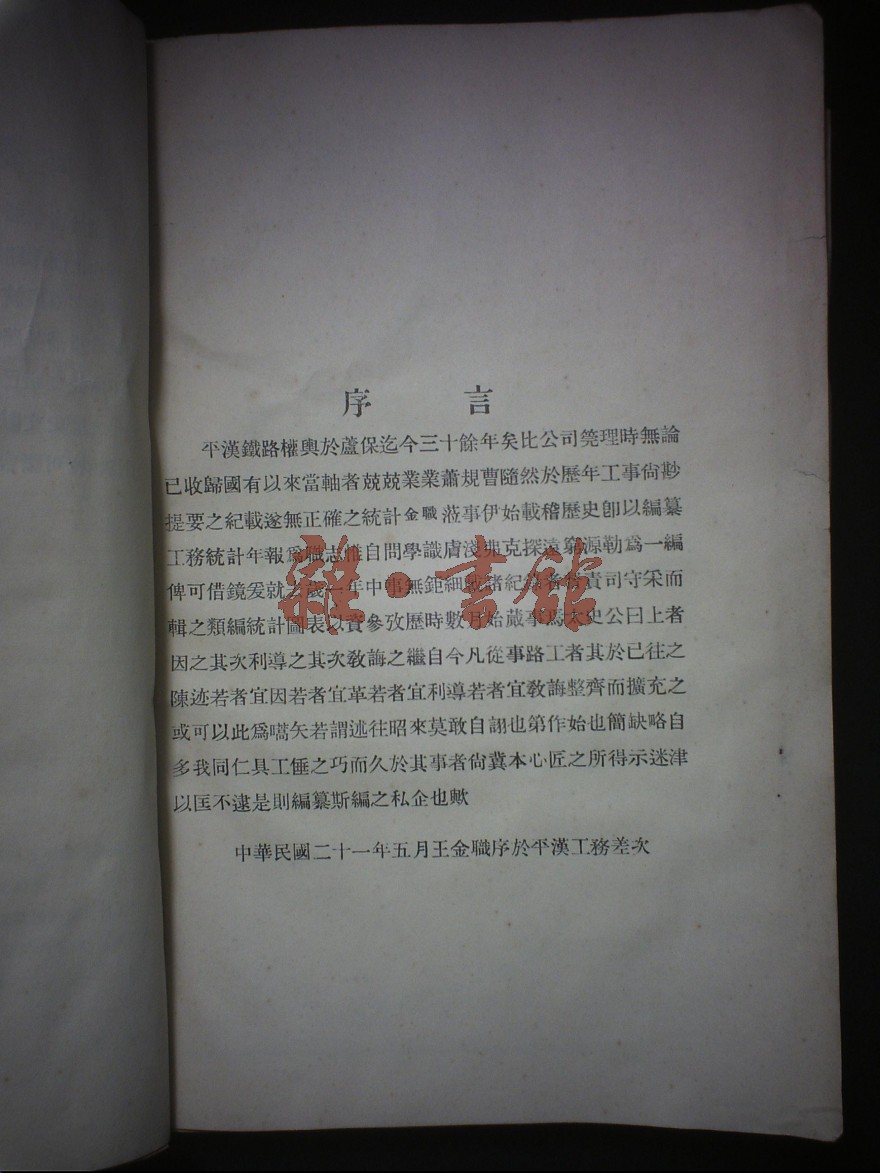 序 言
平漢鐵路權輿於蘆保迄今三十餘年矣比公司筦理時無論
已收歸國有以來當軸者兢兢業業蕭規曹隨然於歷年工事尙尟
提要之紀載遂無正確之統計金職蒞事伊始載稽歷史卽以編纂
工務統計年報爲職志惟自問學識淺膚弗克探遠窮源勒爲一編
俾可借鏡爰就去歲一年中事無鉅細載諸紀 責司守采而
輯之類編統計圖表以資參攷歷時數月始蕆事焉太史公曰上者
因之其次利導之其次敎誨之繼自今凡從事路工者其於已往之
陳迹若者宜因若者宜革若者宜利導若者宜敎誨整齊而擴充之
或可以此爲嚆矢若謂述往昭來莫敢自詡也第作始也簡缺略自
多我同仁具工倕之巧而久於其事者尙冀本心匠之所得示迷津
以匡不逮是則編纂斯編之私企也歟
中華民國二十一年五月王金職序於平漢工務差次
雜·書館